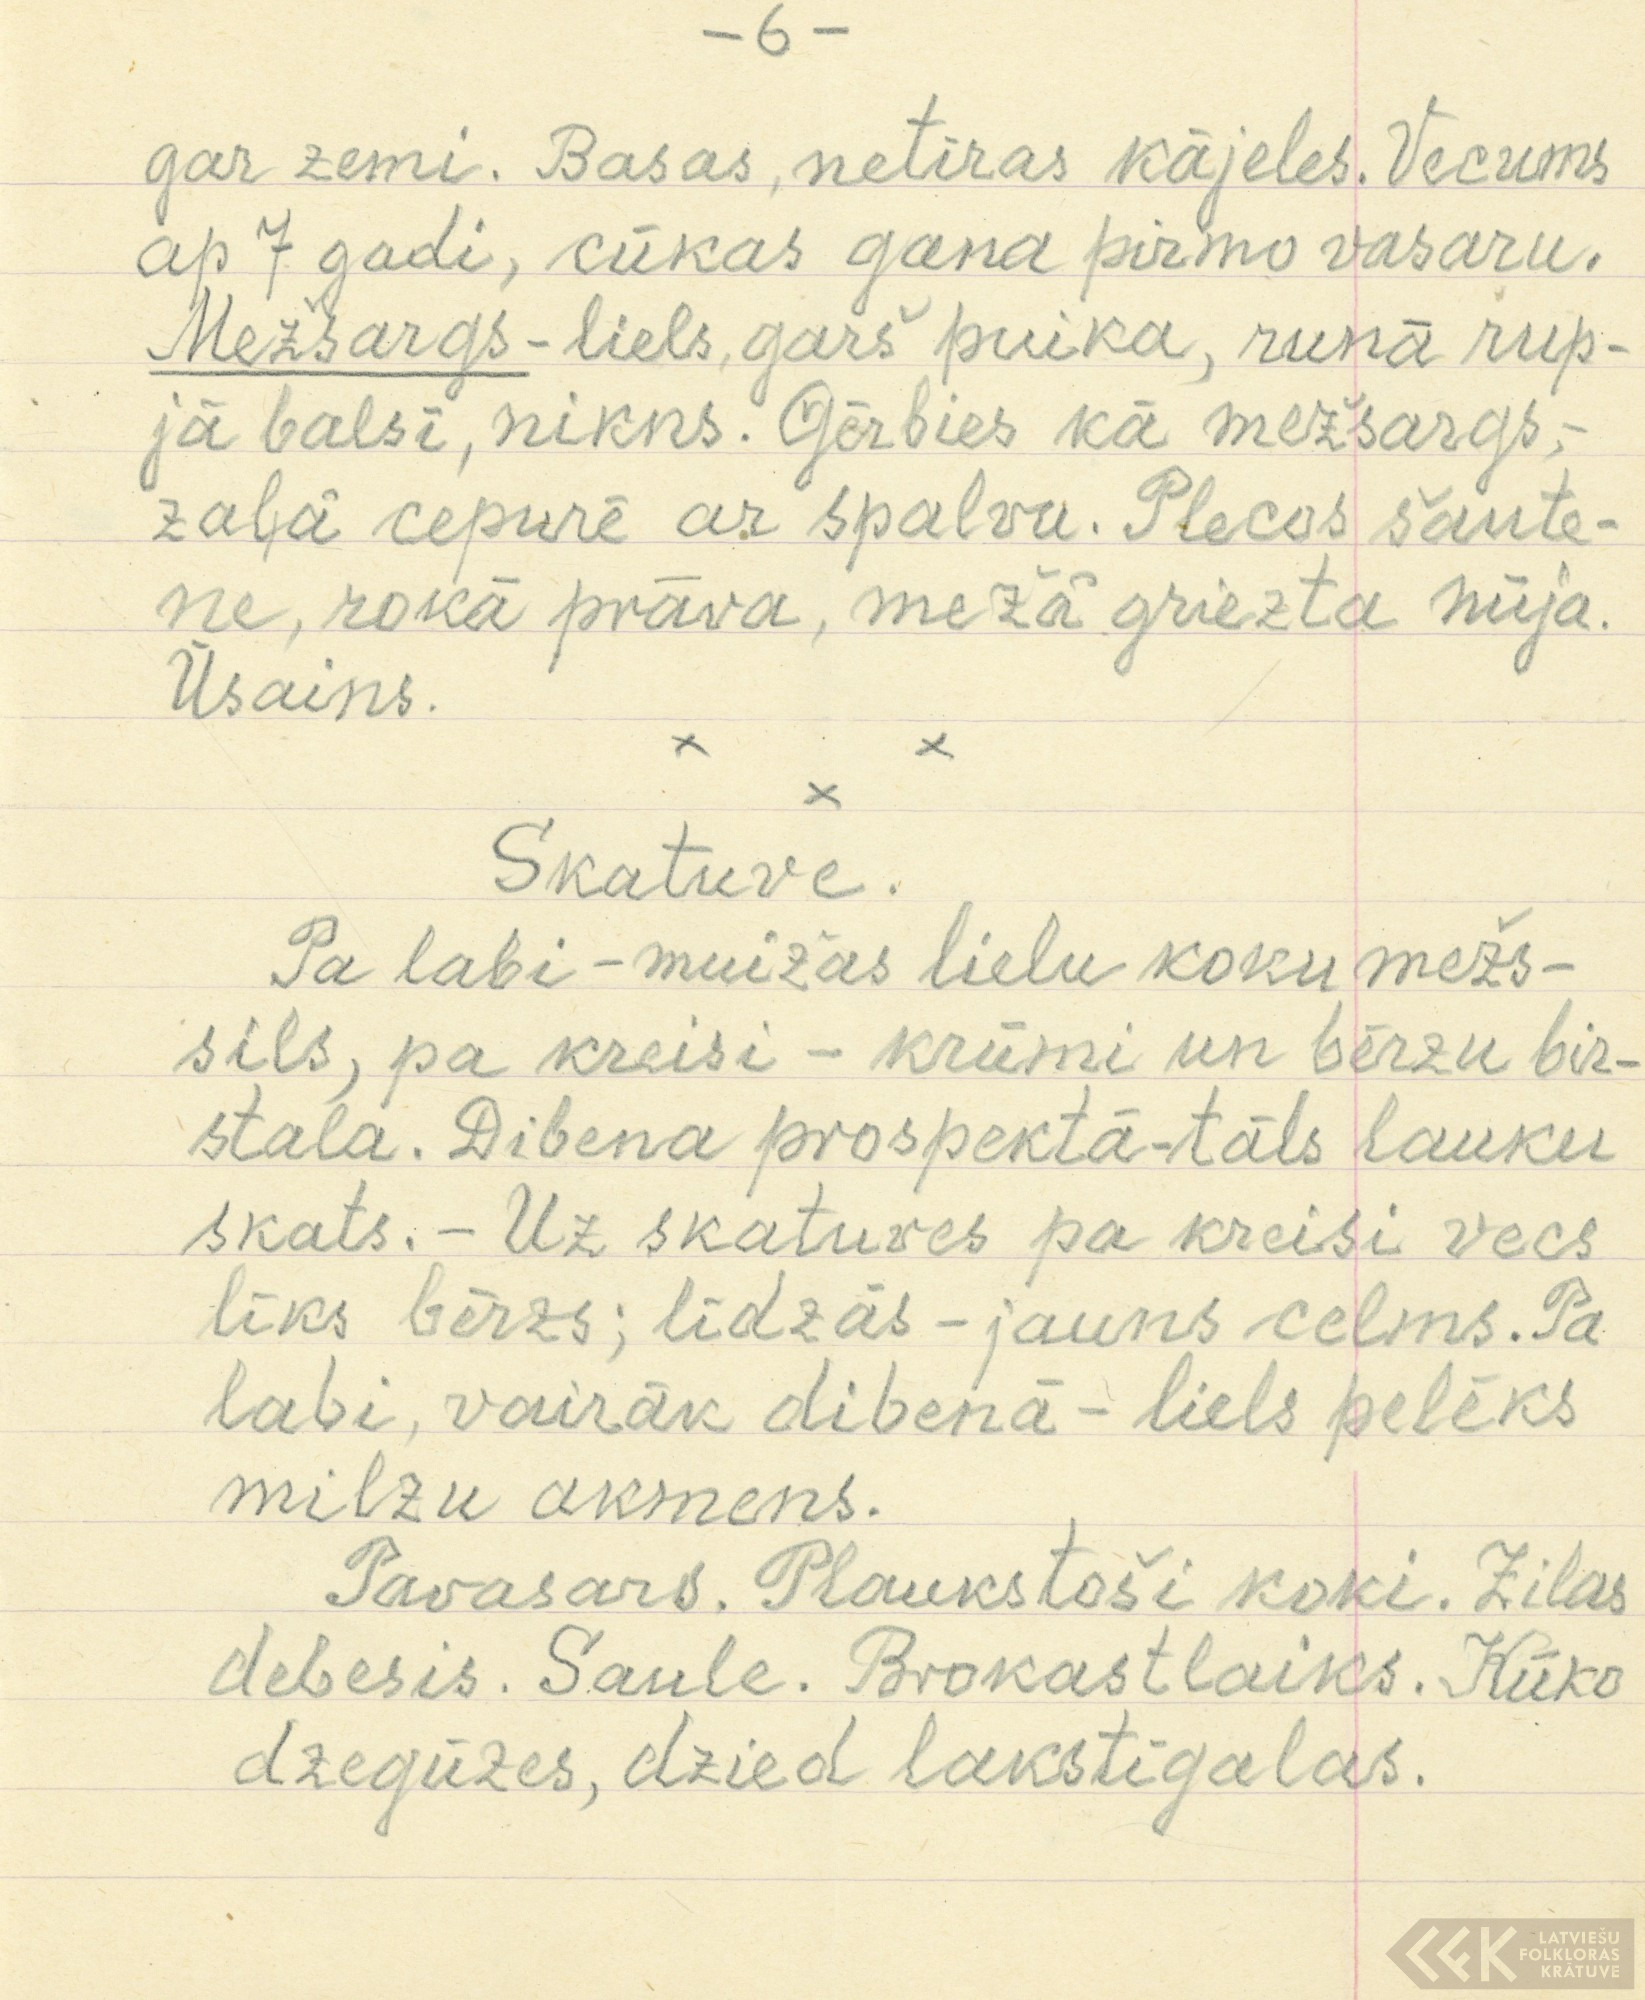 - 6 -
gar zemi. Basas, netīras kājeles. Vecums
ap 7 gadi, cūkas gana pirmo vasaru.
Mežsargs - liels, garš puika, runā rup-
jā balsī, nikns. Ģērbies kā mežsargs, -
zaļā cepurē ar spalvu. Plecos šaute-
ne, rokā prāva, mežā griezta nūja.
Ūsains.
x x
x
Skatuve.
Pa labi - muižas lielu koku mežs -
sils, pa kreisi - krūmi un bērzu bir-
stala. Dibena prospektā - tāls lauku
skats. - Uz skatuves pa kreisi vecs
līks bērzs; līdzās - jauns celms. Pa
labi, vairāk dibenā - liels pelēks
milzu akmens.
Pavasars. Plaukstoši koki. Zilas
debesis. Saule. Brokastlaiks. Kūko
dzegūzes, dzied lakstīgalas.
LATVIEŠU
FOLKLORAS
KRĀTUVE